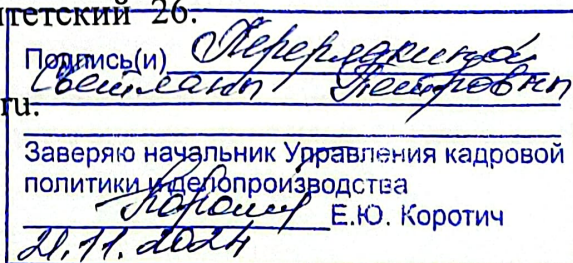 тетский 26.
Подпись(и)
Светланы Петровны
ru.
Заверяю начальник Управления кадровой
политики и делопроизводства
Е.Ю. Коротич
21.11.2024